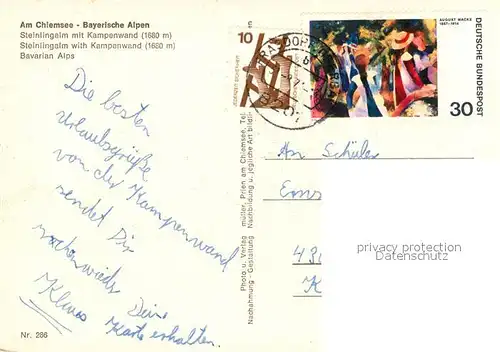 Am Chiemsee - Bayerische Alpen
Steinlingalm mit Kampenwand (1680 m)
Steinlingalm with Kampenwand (1680 m)
Bavarian Alps
10
AUGUST MACKE
1887-1914
DEUTSCHE BUNDESPOST
30
Die besten
Urlaubsgrüße
von der Kampenwand
sendet Dir
Klaus
Deine
Karte erhalten.
An Schüler
Ems
43
K
privacy protection
Datenschutz
Photo u. Verlag müller, Prien am Chiemsee, Tel.
Nachahmung - Gestaltung Nachbildung u. jegliche Art bildlic
Nr. 286